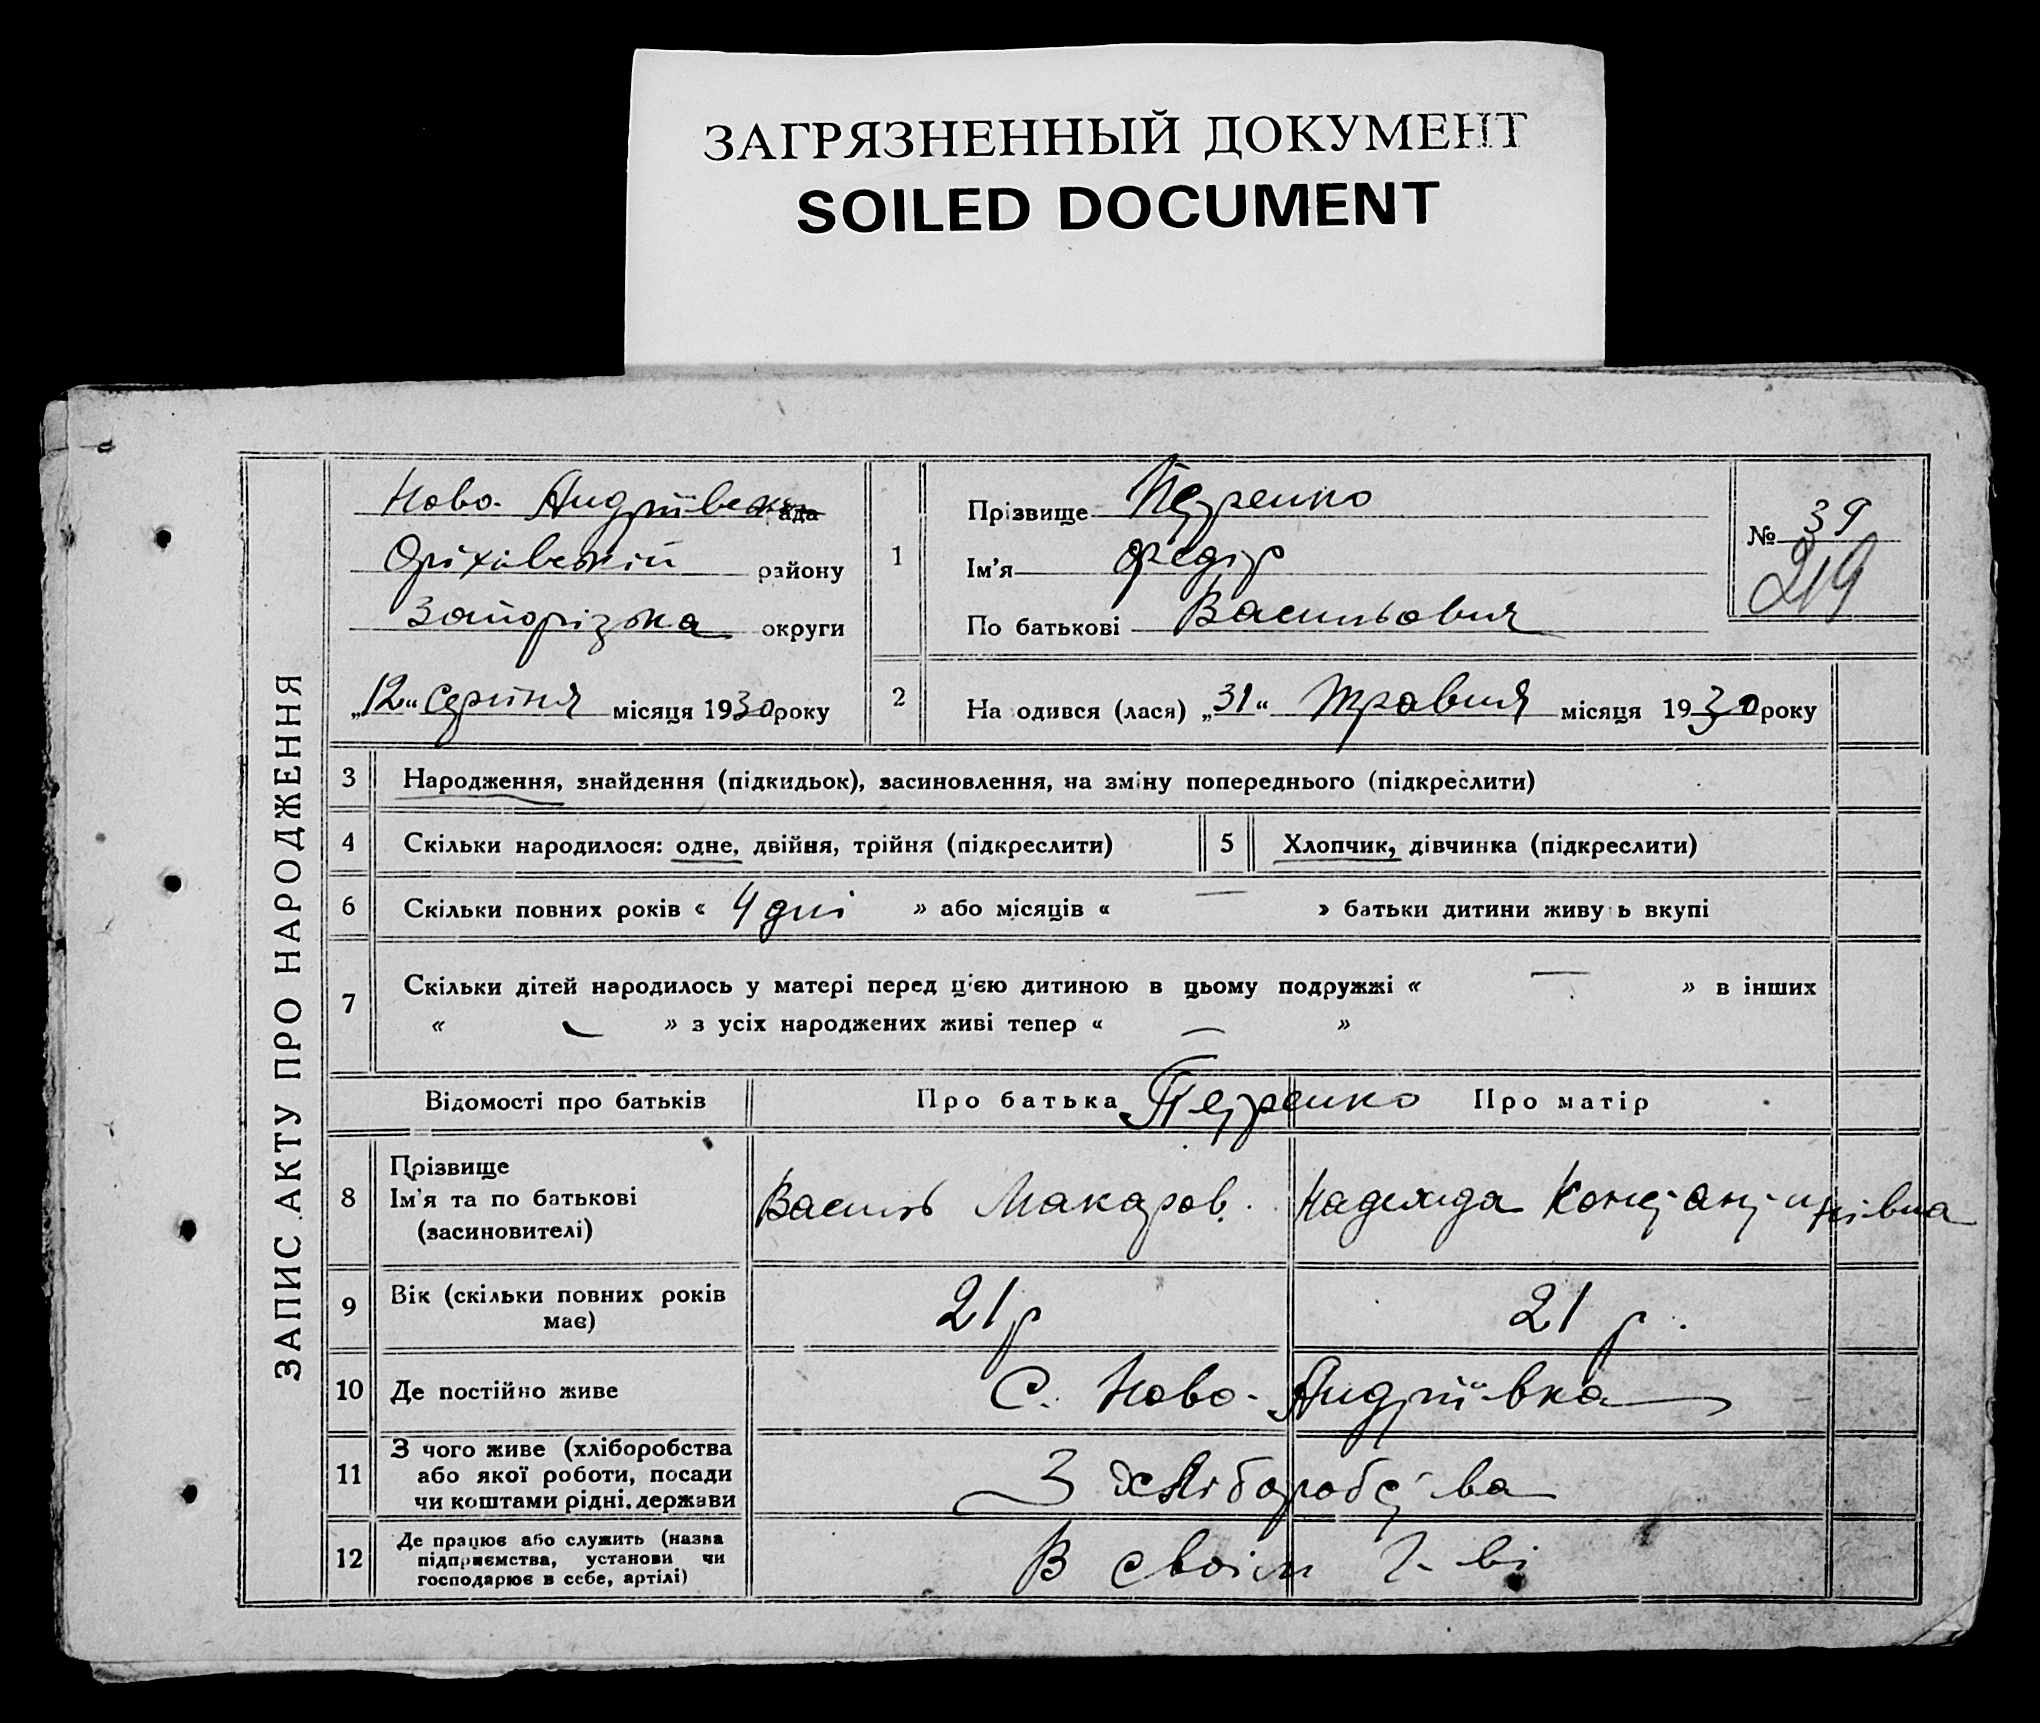 ЗАГРЯЗНЕННЫЙ ДОКУМЕНТ
SOILED DOCUMENT
ЗАПИС АКТУ ПРО НАРОДЖЕННЯ
Ново-Андріївська рада
Оріхівській району
Запорізька округи
„12“ серпня місяця 1930 року
1
Прізвище Петренко
Ім'я Федір
По батькові Васильович
№ 39
219
2
На одився (лася) „31“ Травня місяця 1930 року
3 Народження, знайдення (підкидьок), засиновлення, на зміну попереднього (підкреслити)
4 Скільки народилося: одне, двійня, трійня (підкреслити) 5 Хлопчик, дівчинка (підкреслити)
6 Скільки повних років « 4 дні » або місяців « — » батьки дитини живу ь вкупі
7 Скільки дітей народилось у матері перед ц'єю дитиною в цьому подружжі « — » в інших
« — » з усіх народжених живі тепер « — »
Відомості про батьків Про батька Петренко Про матір
8 Прізвище
Ім'я та по батькові
(засиновителі)
Василь Макаров. Надежда Констант
9 Вік (скільки повних років
має)
21 р 21 р.
10 Де постійно живе С. Ново-Андріївка
11 З чого живе (хліборобства
або якої роботи, посади
чи коштами рідні, держави
З хліборобства
12 Де працює або служить (назва
підприємства, установи чи
господарює в себе, артілі)
В своїм г-ві